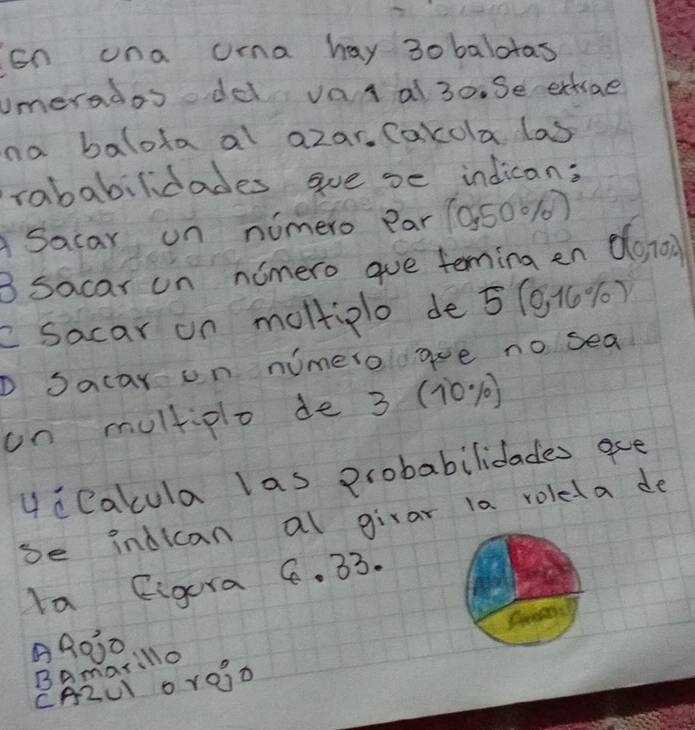 En una urna hay 30 balotas
umerados del va 1 al 30. Se extrae
na balota al azar. Cakcula las
rababilidades que se indican:
A Sacar un número Par (0,50%)
B sacar un número que temina en 0(0,10%)
C Sacar un moltiplo de 5 (0,16%)
D Sacar un número que no sea
un multiplo de 3 (10%)
4 ¿Calcula las probabilidades que
se indican al girar la roleta de
la Figura 6.33.
A Rojo
B Amarillo
C Azul o rojo